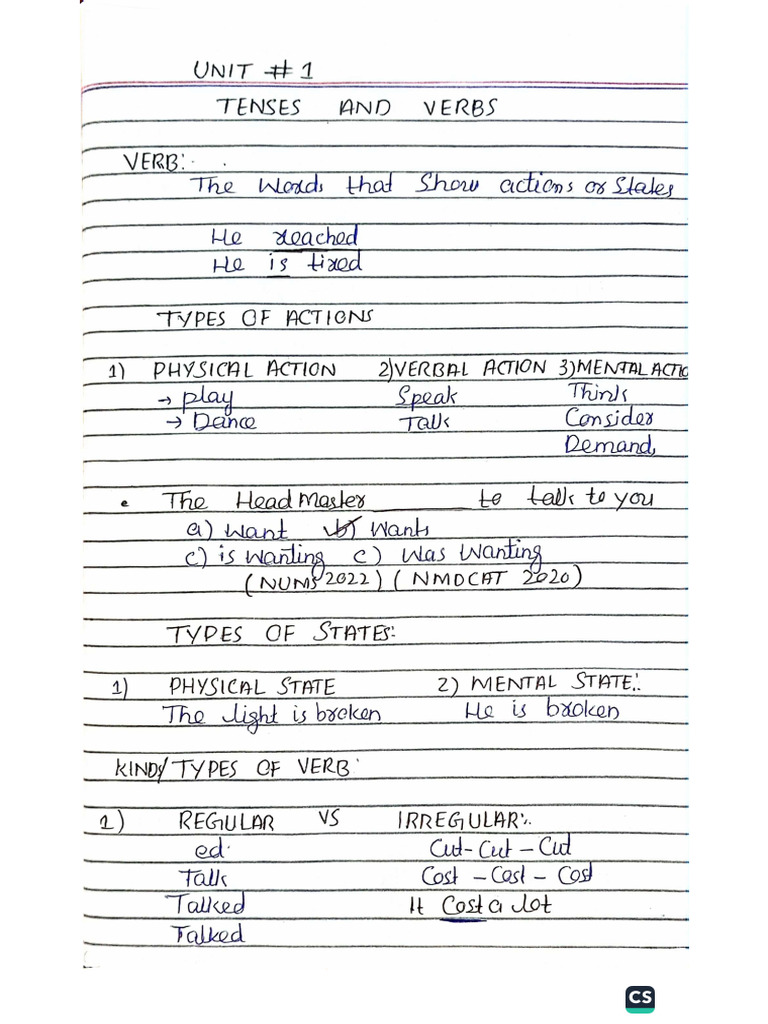 UNIT # 1
TENSES AND VERBS
VERB:
The words that show actions or states
He reached
He is tired
TYPES OF ACTIONS
1) PHYSICAL ACTION 2)VERBAL ACTION 3)MENTAL ACTIO
→ play Speak Think
→ Dance Talk Consider
Demand
• The Head Master ________ to talk to you
a) want b) wants
c) is wanting c) was wanting
(NUMS 2022) (NMDCAT 2020)
TYPES OF STATES:
1) PHYSICAL STATE 2) MENTAL STATE:
The light is broken He is broken
KINDS/TYPES OF VERB:
1) REGULAR VS IRREGULAR:
ed. Cut - Cut - Cut
Talk Cost - Cost - Cost
Talked It Cost a lot
Talked
CS